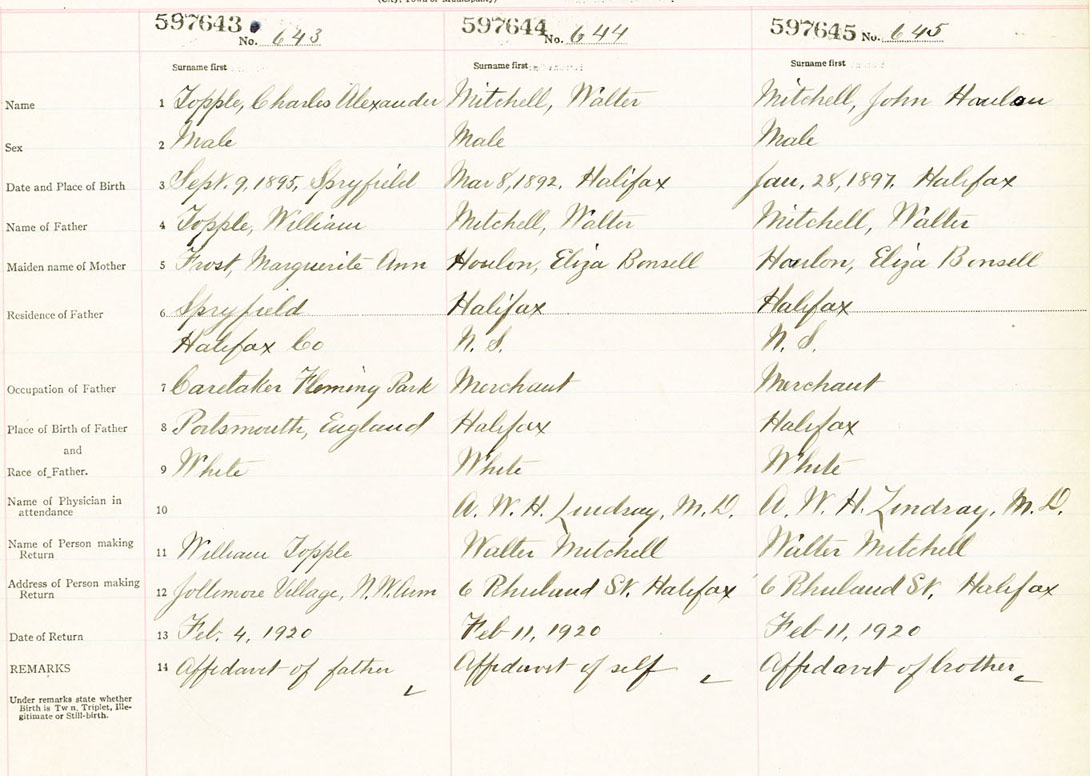 (City, Town or Municipality)
597643 No. 643 597644 No. 644 597645 No. 645
Surname first Surname first Surname first
Name 1 Topple, Charles Alexander Mitchell, Walter Mitchell, John Houlon
Sex 2 Male Male Male
Date and Place of Birth 3 Sept. 9, 1895, Spryfield Mar 8, 1892, Halifax Jan, 28, 1897, Halifax
Name of Father 4 Topple, William Mitchell, Walter Mitchell, Walter
Maiden name of Mother 5 Frost, Marguerite Ann Houlon, Eliza Bonsell Houlon, Eliza Bonsell
Residence of Father 6 Spryfield Halifax Halifax
Halifax Co N. S. N. S.
Occupation of Father 7 Caretaker Fleming Park Merchant Merchant
Place of Birth of Father 8 Portsmouth, England Halifax Halifax
and
Race of Father. 9 White White White
Name of Physician in
attendance 10 A. W. H. Lindsay, M.D. A. W. H. Lindsay, M.D.
Name of Person making
Return 11 William Topple Walter Mitchell Walter Mitchell
Address of Person making
Return 12 Jollimore Village, N.W. Arm 6 Rhuland St. Halifax 6 Rhuland St, Halifax
Date of Return 13 Feb. 4, 1920 Feb 11, 1920 Feb 11, 1920
REMARKS 14 Affidavit of father Affidavit of self Affidavit of brother
Under remarks state whether
Birth is Twn, Triplet, Ille-
gitimate or Still-birth.